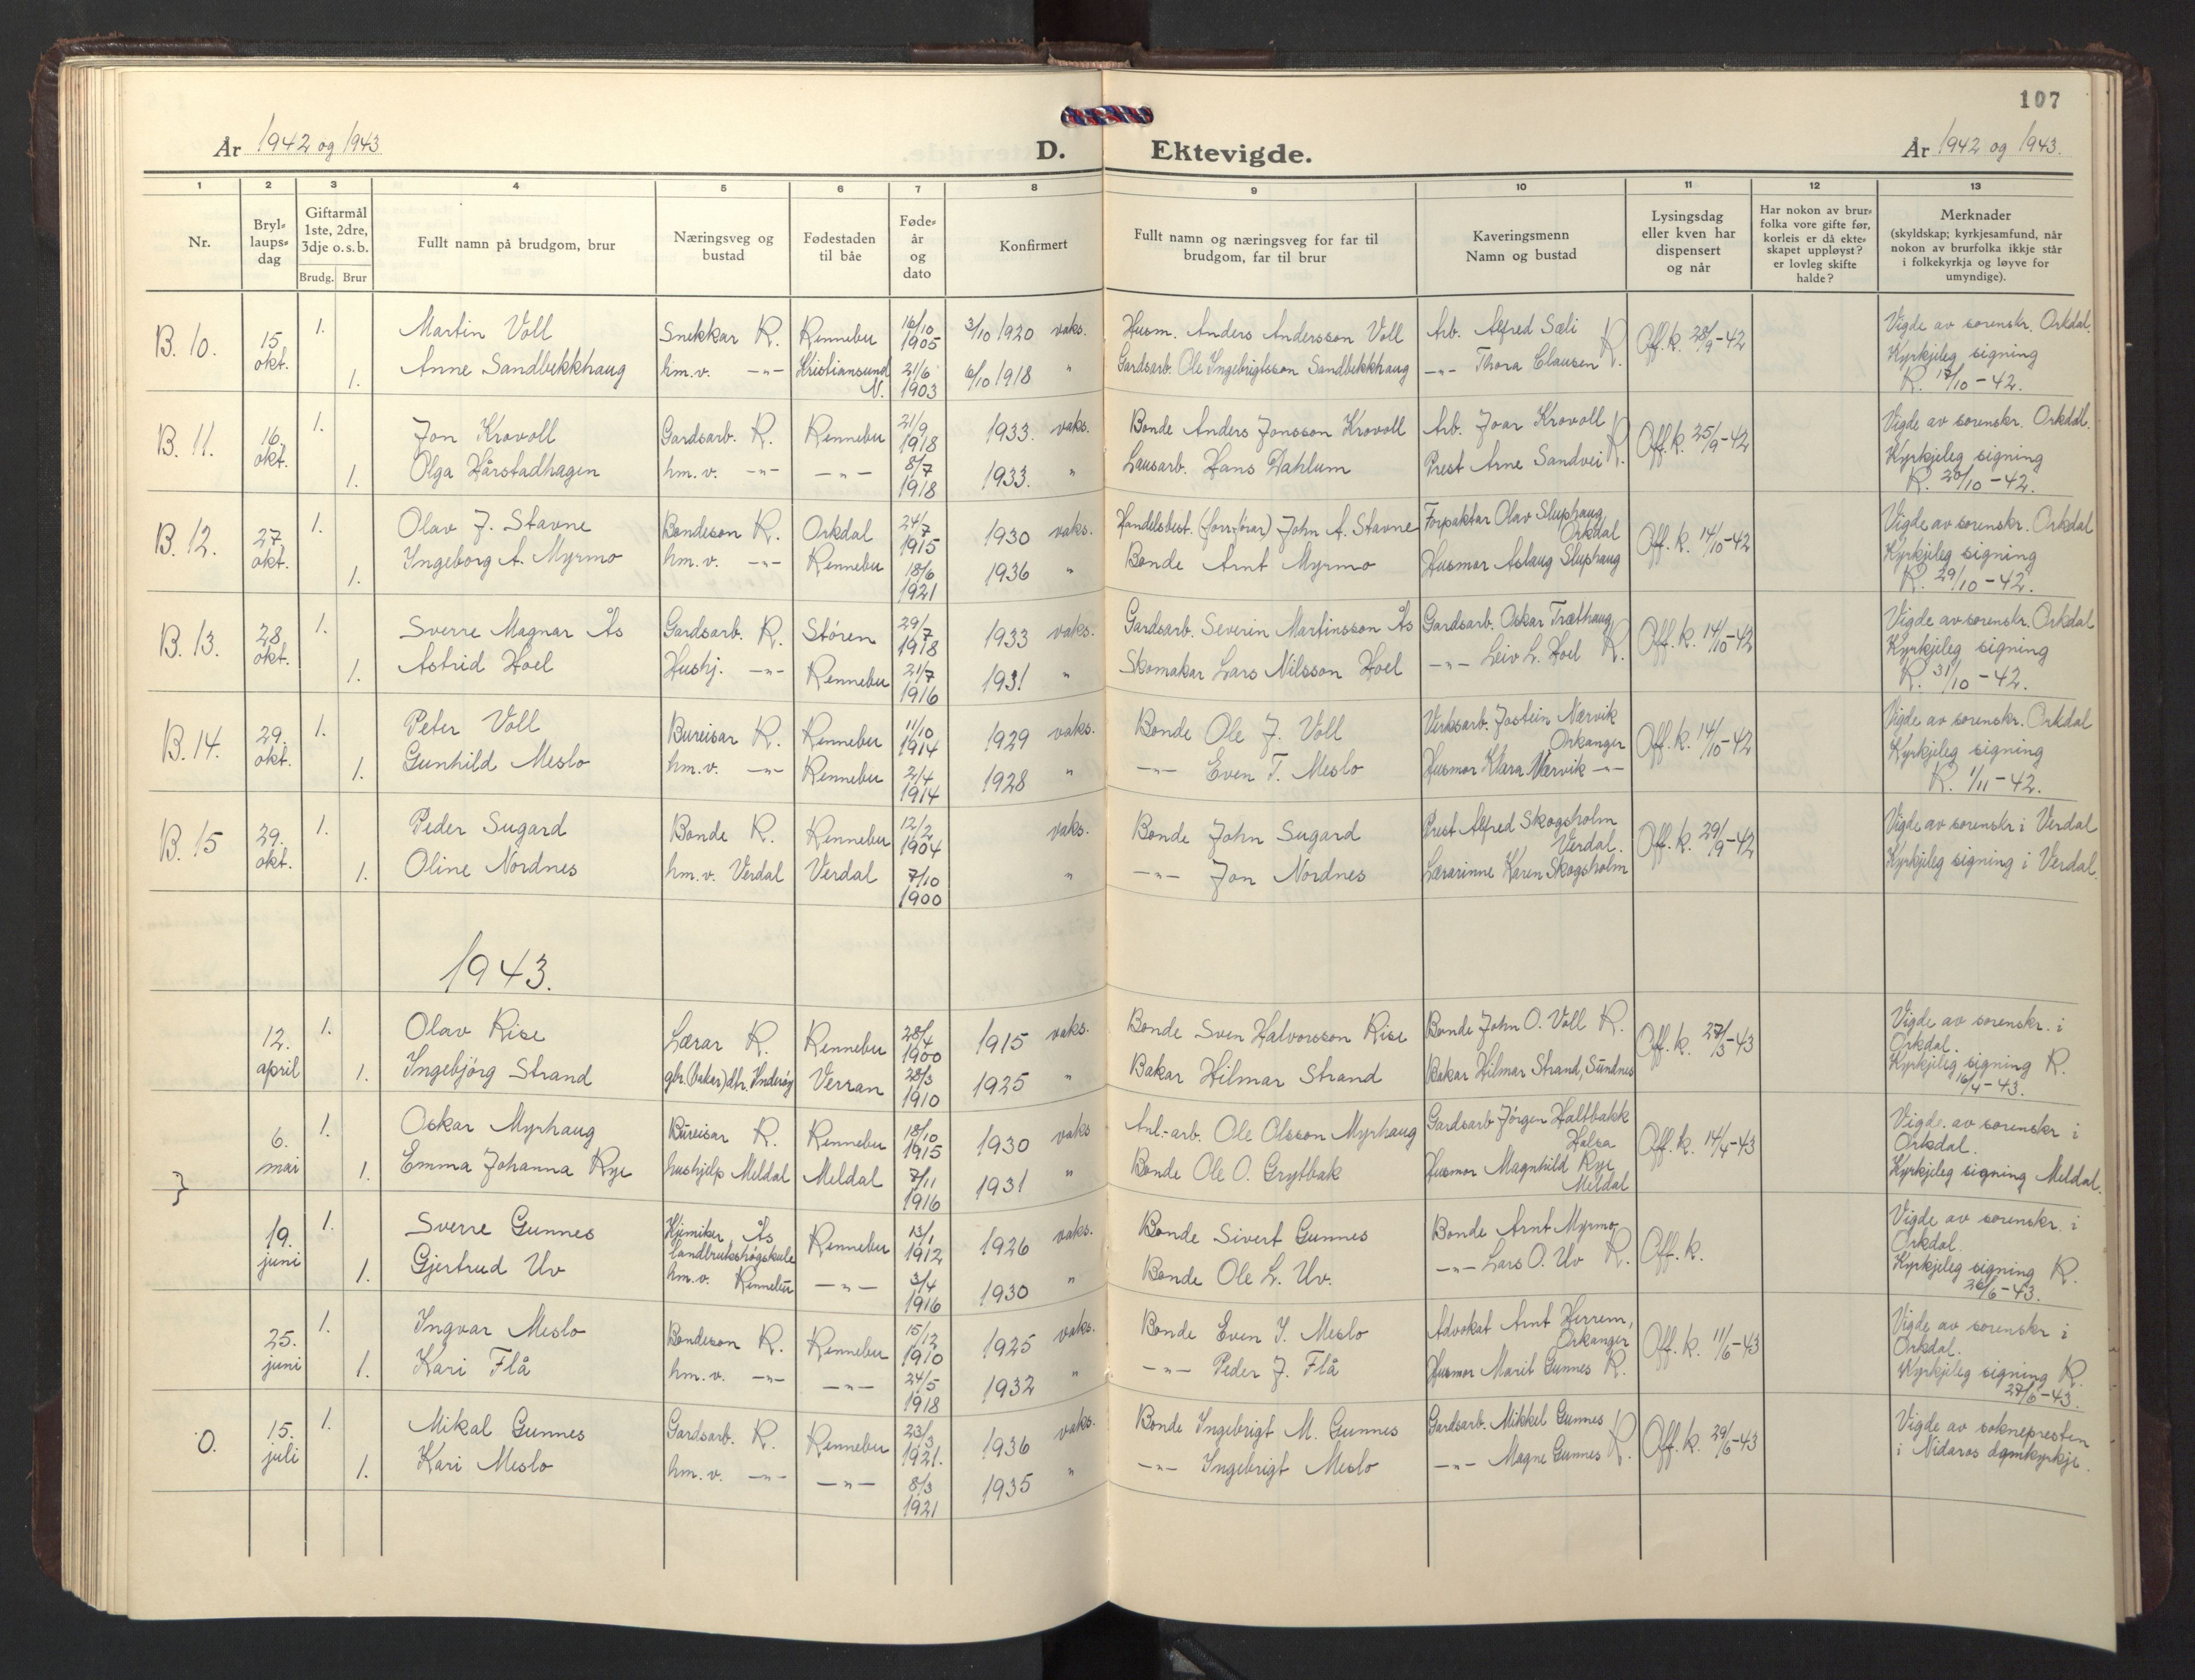 107
År 1942 og 1943
D. Ektevigde.
År 1942 og 1943.
1 2 3 4 5 6 7 8 9 10 11 12 13
Nr.
Bryl-
laups-
dag
Giftarmål
1ste, 2dre,
3dje o. s. b.
Brudg. Brur
Fullt namn på brudgom, brur
Næringsveg og
bustad
Fødestaden
til båe
Føde-
år
og
dato
Konfirmert
Fullt namn og næringsveg for far til
brudgom, far til brur
Kaveringsmenn
Namn og bustad
Lysingsdag
eller kven har
dispensert
og når
Har nokon av brur-
folka vore gifte før,
korleis er då ekte-
skapet uppløyst?
er lovleg skifte
halde?
Merknader
(skyldskap; kyrkjesamfund, når
nokon av brurfolka ikkje står
i folkekyrkja og løyve for
umyndige).
B. 10. 15. okt. 1. Martin Voll Snekkar R. Rennebu 16/10 1905 3/10 1920 vaks. Husm. Anders Andersson Voll Arb. Alfred Sæli R. Off. k. 28/9-42 Vigde av sorenskr. Orkdal.
1. Anne Sandbekkhaug hm.v. -"- Kristiansund N. 21/6 1903 6/10 1918 " Gardsarb. Ole Ingebrigtsson Sandbekkhaug -"- Thora Clausen Kyrkjeleg signing
R. 17/10-42.
B. 11. 16. okt. 1. Jon Krovoll Gardsarb. R. Rennebu 21/9 1918 1933 vaks. Bonde Anders Jonsson Krovoll Arb. Joar Krovoll R. Off. k. 25/9-42 Vigde av sorenskr. Orkdal.
1. Olga Hårstadhagen hm.v. -"- -"- 8/7 1918 1933. " Lausarb. Hans Dahlum Prest Arne Sandvei Kyrkjeleg signing
R. 20/10-42.
B. 12. 27. okt. 1. Olav J. Stavne Bondeson R. Orkdal 24/7 1915 1930 vaks. Handelsbest. (forr.førar) John A. Stavne Forpaktar Olav Sluphaug, Orkdal Off. k. 14/10-42 Vigde av sorenskr. Orkdal
1. Ingeborg A. Myrmo hm.v. -"- Rennebu 18/6 1921 1936 " Bonde Arnt Myrmo Husmor Aslaug Sluphaug Kyrkjeleg signing
R. 29/10-42.
B. 13. 28. okt. 1. Sverre Magnar Ås Gardsarb. R. Støren 29/7 1918 1933 vaks. Gardsarb. Severin Martinsson Ås Gardsarb. Oskar Træthaug Off. k. 14/10-42 Vigde av sorenskr. Orkdal
1. Astrid Hoel Hushj. -"- Rennebu 21/7 1916 1931 " Skomakar Lars Nilsson Hoel -"- Leiv L. Hoel R. Kyrkjeleg signing
R. 31/10-42.
B. 14. 29. okt. 1. Peter Voll Bureisar R. Rennebu 11/10 1914 1929 vaks. Bonde Ole J. Voll Verksarb. Jostein Nærvik Orkanger Off. k. 14/10-42 Vigde av sorenskr. Orkdal
1. Gunhild Meslo hm.v. -"- Rennebu 2/4 1914 1928 " -"- Even T. Meslo Husmor Klara Nærvik -"- Kyrkjeleg signing
R. 1/11-42.
B. 15 29. okt. 1. Peder Sugard Bonde R. Rennebu 12/2 1904 vaks. Bonde John Sugard Prest Alfred Skogsholm Verdal. Off. k. 29/9-42 Vigde av sorenskr i Verdal
1. Oline Nordnes hm.v. Verdal Verdal 7/10 1900 " -"- Jon Nordnes Lærarinne Karen Skogsholm Kyrkjeleg signing i Verdal.
1943.
12. april 1. Olav Rise Lærar R. Rennebu 28/4 1900 1915 vaks. Bonde Sven Halvorsson Rise Bonde John O. Voll R. Off. k. 27/3-43 Vigde av sorenskr. i Orkdal.
1. Ingebjørg Strand gbr.(bakar)dtr. Inderøy Verran 28/3 1910 1925 " Bakar Hilmar Strand Bakar Hilmar Strand, Sundnes Kyrkjeleg signing R.
16/4-43.
6. mai 1. Oskar Myrhaug Bureisar R. Rennebu 18/10 1915 1930 vaks Anl.-arb. Ole Olsson Myrhaug Gardsarb Jørgen Haltbakk Halsa Off. k. 14/4-43 Vigde. av sorenskr i Orkdal.
} 1. Emma Johanna Rye hushjelp Meldal Meldal 7/11 1916 1931 " Bonde Ole O. Grytbak Husmor Magnhild Rye Meldal Kyrkjeleg signing Meldal.
19. juni 1. Sverre Gunnes Kjemiker, Ås landbrukshøgskule Rennebu 13/1 1912 1926 vaks. Bonde Sivert Gunnes Bonde Arnt Myrmo Off. k. Vigde av sorenskr. i Orkdal.
1. Gjertrud Uv hm.v. Rennebu -"- 3/4 1916 1930 " Bonde Ole L. Uv. -"- Lars O. Uv R. Kyrkjeleg signing R.
20/6-43.
25. juni 1. Ingvar Meslo Bondeson R. Rennebu 15/12 1910 1925 vaks. Bonde Even J. Meslo Advokat Arnt Herrem, Orkanger Off. k. 11/6-43 Vigde av sorenskr i Orkdal.
1. Kari Flå hm.v. -"- -"- 24/5 1918 1932 " -"- Peder J. Flå Husmor Marit Gunnes R. Kyrkjeleg signing R.
27/6-43.
O. 15. juli 1. Mikal Gunnes Gardsarb. R. Rennebu 23/3 1921. 1936 vaks. Bonde Ingebrigt M. Gunnes Gardsarb. Mikkel Gunnes R. Off. k. 29/6-43 Vigde av soknepresten
1. Kari Meslo hm.v. -"- -"- 8/3 1921 1935 " -"- Ingebrigt Meslo -"- Magne Gunnes i Nidaros domkyrkje.